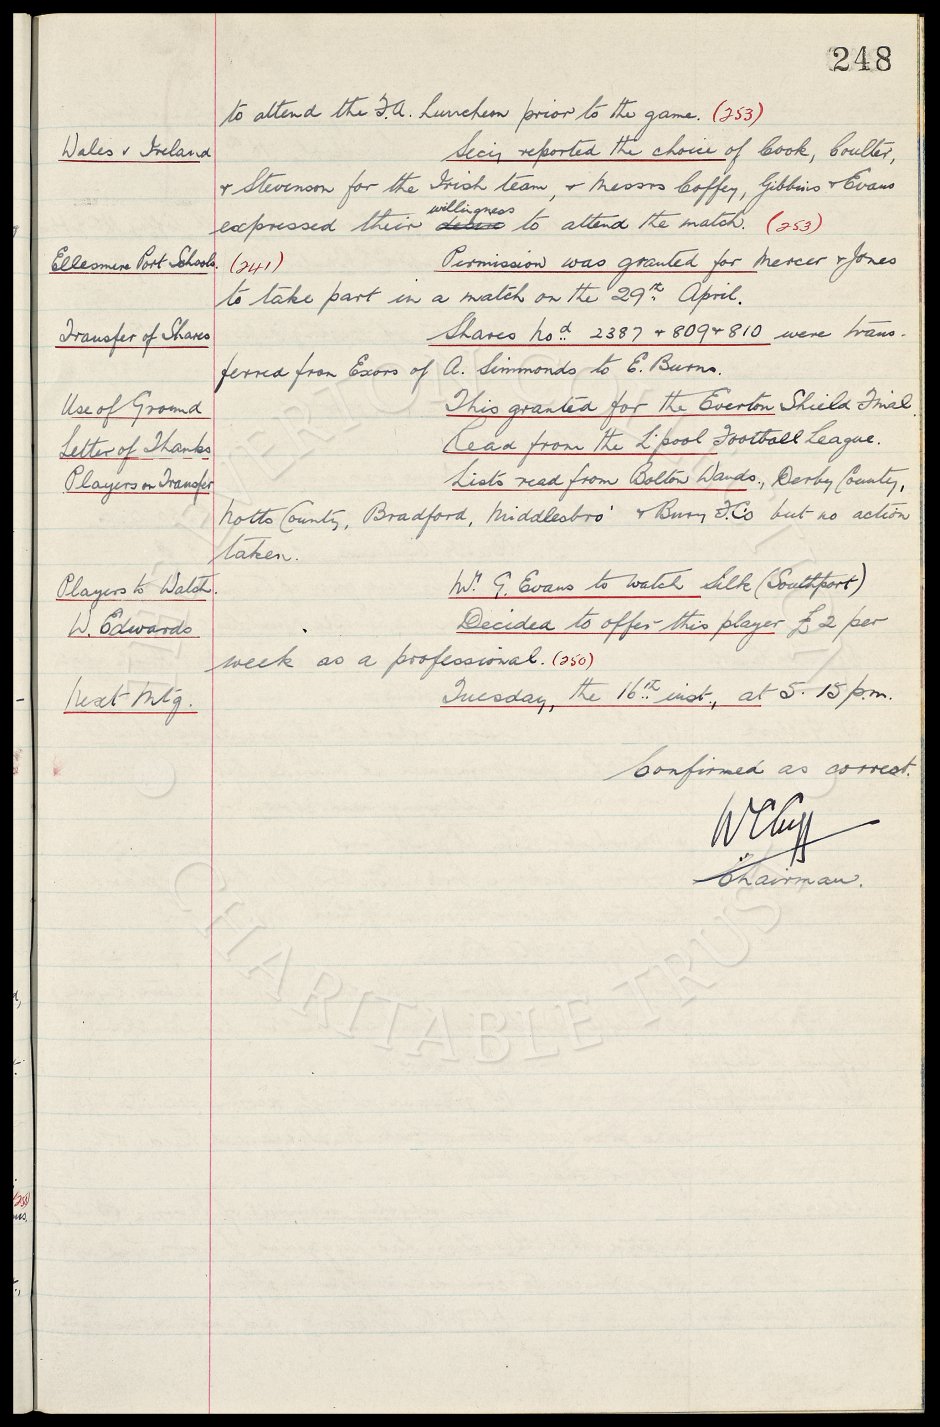 248
to attend the F.A. Luncheon prior to the game. (253)
Wales v Ireland Secy. reported the choice of Cook, Coulter,
& Stevenson for the Irish team, & Messrs Coffey, Gibbins & Evans
willingness
expressed their desire to attend the match. (253)
Ellesmere Port Schools. (241) Permission was granted for Mercer & Jones
to take part in a match on the 29th April.
Transfer of Shares Shares Nod. 2387 & 809 & 810 were trans-
ferred from Exors of A. Simmonds to E. Burns.
Use of Ground This granted for the Everton Shield Final.
Letter of Thanks Read from the L'pool Football League.
Players on Transfer Lists read from Bolton Wands., Derby County,
Notts County, Bradford, Middlesbro' & Bury F.Cs but no action
taken.
Players to Watch. Mr. G. Evans to watch Silk (Southport)
W. Edwards Decided to offer this player £2 per
week as a professional. (250)
Next Mtg. Tuesday, the 16th inst., at 5.15 p.m.
Confirmed as correct.
W C Cuff
Chairman.
EVERTON COLLECTION
CHARITABLE TRUST